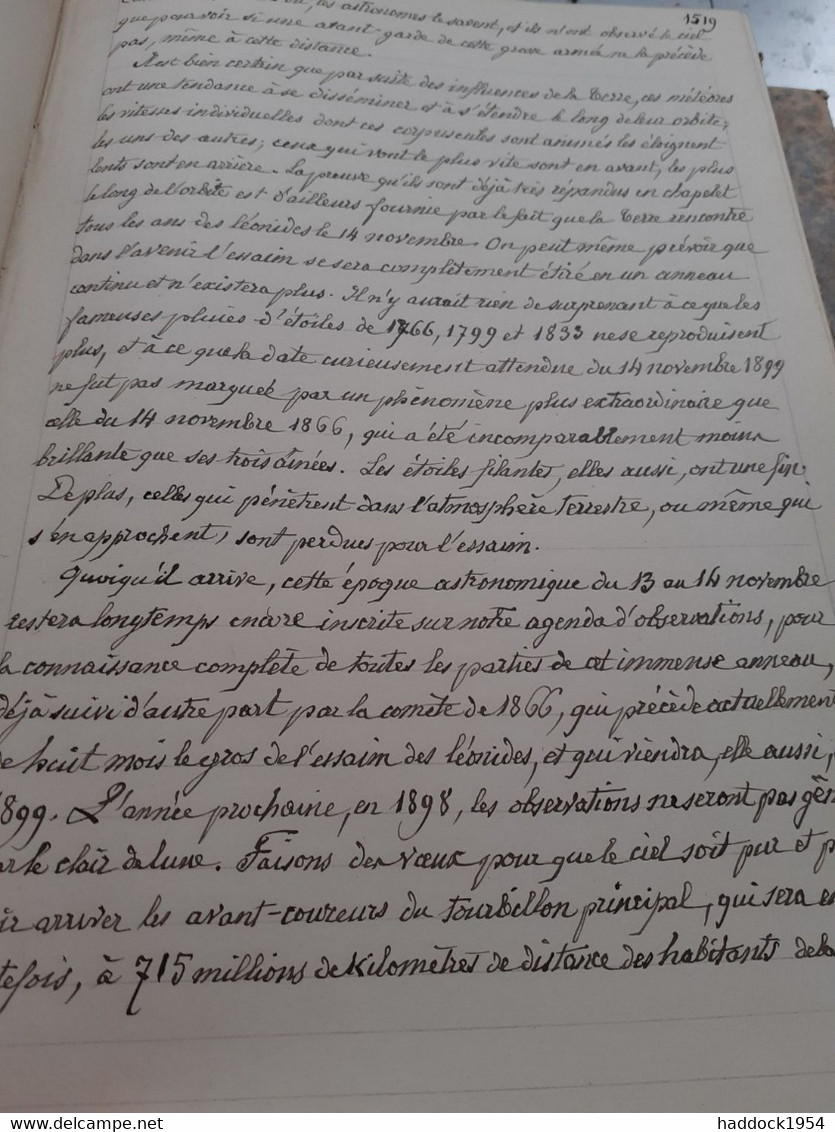 1519
les astronomes le savent, et ils n'ont observé le ciel
que pour voir si une avant-garde de cette grave armée ne la précède
pas, même à cette distance.
Il est bien certain que par suite des influences de la Terre, ces météores
ont une tendance à se disséminer et à s'étendre le long de leur orbite;
les vitesses individuelles dont ces corpuscules sont animés les éloignent
les uns des autres; ceux qui vont le plus vite sont en avant, les plus
lents sont en arrière. La preuve qu'ils sont déjà très répandus en chapelet
le long de l'orbite est d'ailleurs fournie par le fait que la Terre rencontre
tous les ans des léonides le 14 novembre. On peut même prévoir que
dans l'avenir l'essaim se sera complètement étiré en un anneau
continu et n'existera plus. Il n'y aurait rien de surprenant à ce que les
fameuses pluies d'étoiles de 1766, 1799 et 1833 ne se reproduisent
plus, et à ce que la date curieusement attendue du 14 novembre 1899
ne fut pas marquée par un phénomène plus extraordinaire que
celle du 14 novembre 1866, qui a été incomparablement moins
brillante que ses trois aînées. Les étoiles filantes, elles aussi, ont une fin.
De plus, celles qui pénètrent dans l'atmosphère terrestre, ou même qui
s'en approchent, sont perdues pour l'essaim.
Quoiqu'il arrive, cette époque astronomique du 13 au 14 novembre
restera longtemps encore inscrite sur notre agenda d'observations, pour
la connaissance complète de toutes les parties de cet immense anneau,
déjà suivi d'autre part par la comète de 1866, qui précède actuellement
de huit mois le gros de l'essaim des léonides, et qui viendra, elle aussi,
1899. L'année prochaine, en 1898, les observations ne seront pas gên
ar le clair de lune. Faisons des vœux pour que le ciel soit pur et p
ir arriver les avant-coureurs du tourbillon principal, qui sera e
tefois, à 715 millions de kilomètres de distance des habitants de la
delcampe.net
haddock1954